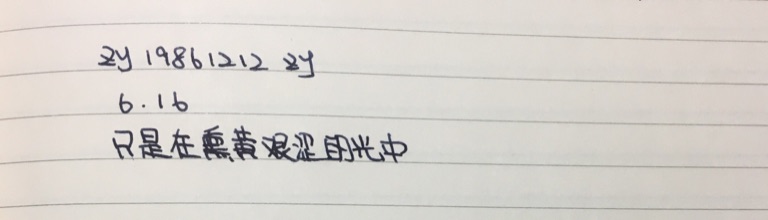 zy 19861212 zy
6.16
只是在熏黄艰涩的光中